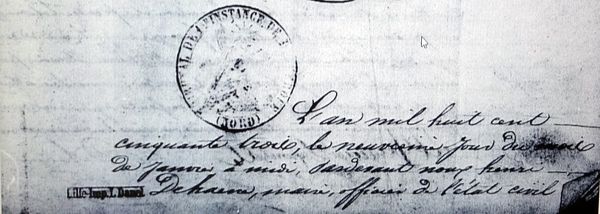 TRIBUNAL DE 1ère INSTANCE DE
(NORD)
L'an mil huit cent
cinquante trois, le neuvieme jour du mois
de Janvier à midi, pardevant nous henri
Dehaene, maire, officier de l'état civil
Lille-Imp. L. Danel